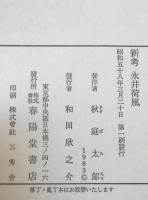 新考 永井荷風
昭和五十八年三月二十日 第一刷発行
著作者 秋庭太郎
©1983
発行者 和田欣之介
東京都中央区日本橋三ノ四ノ一六
発行所 株式会社 春陽堂書店
印刷 株式会社 三秀舎
落丁・乱丁本はお取替いたします